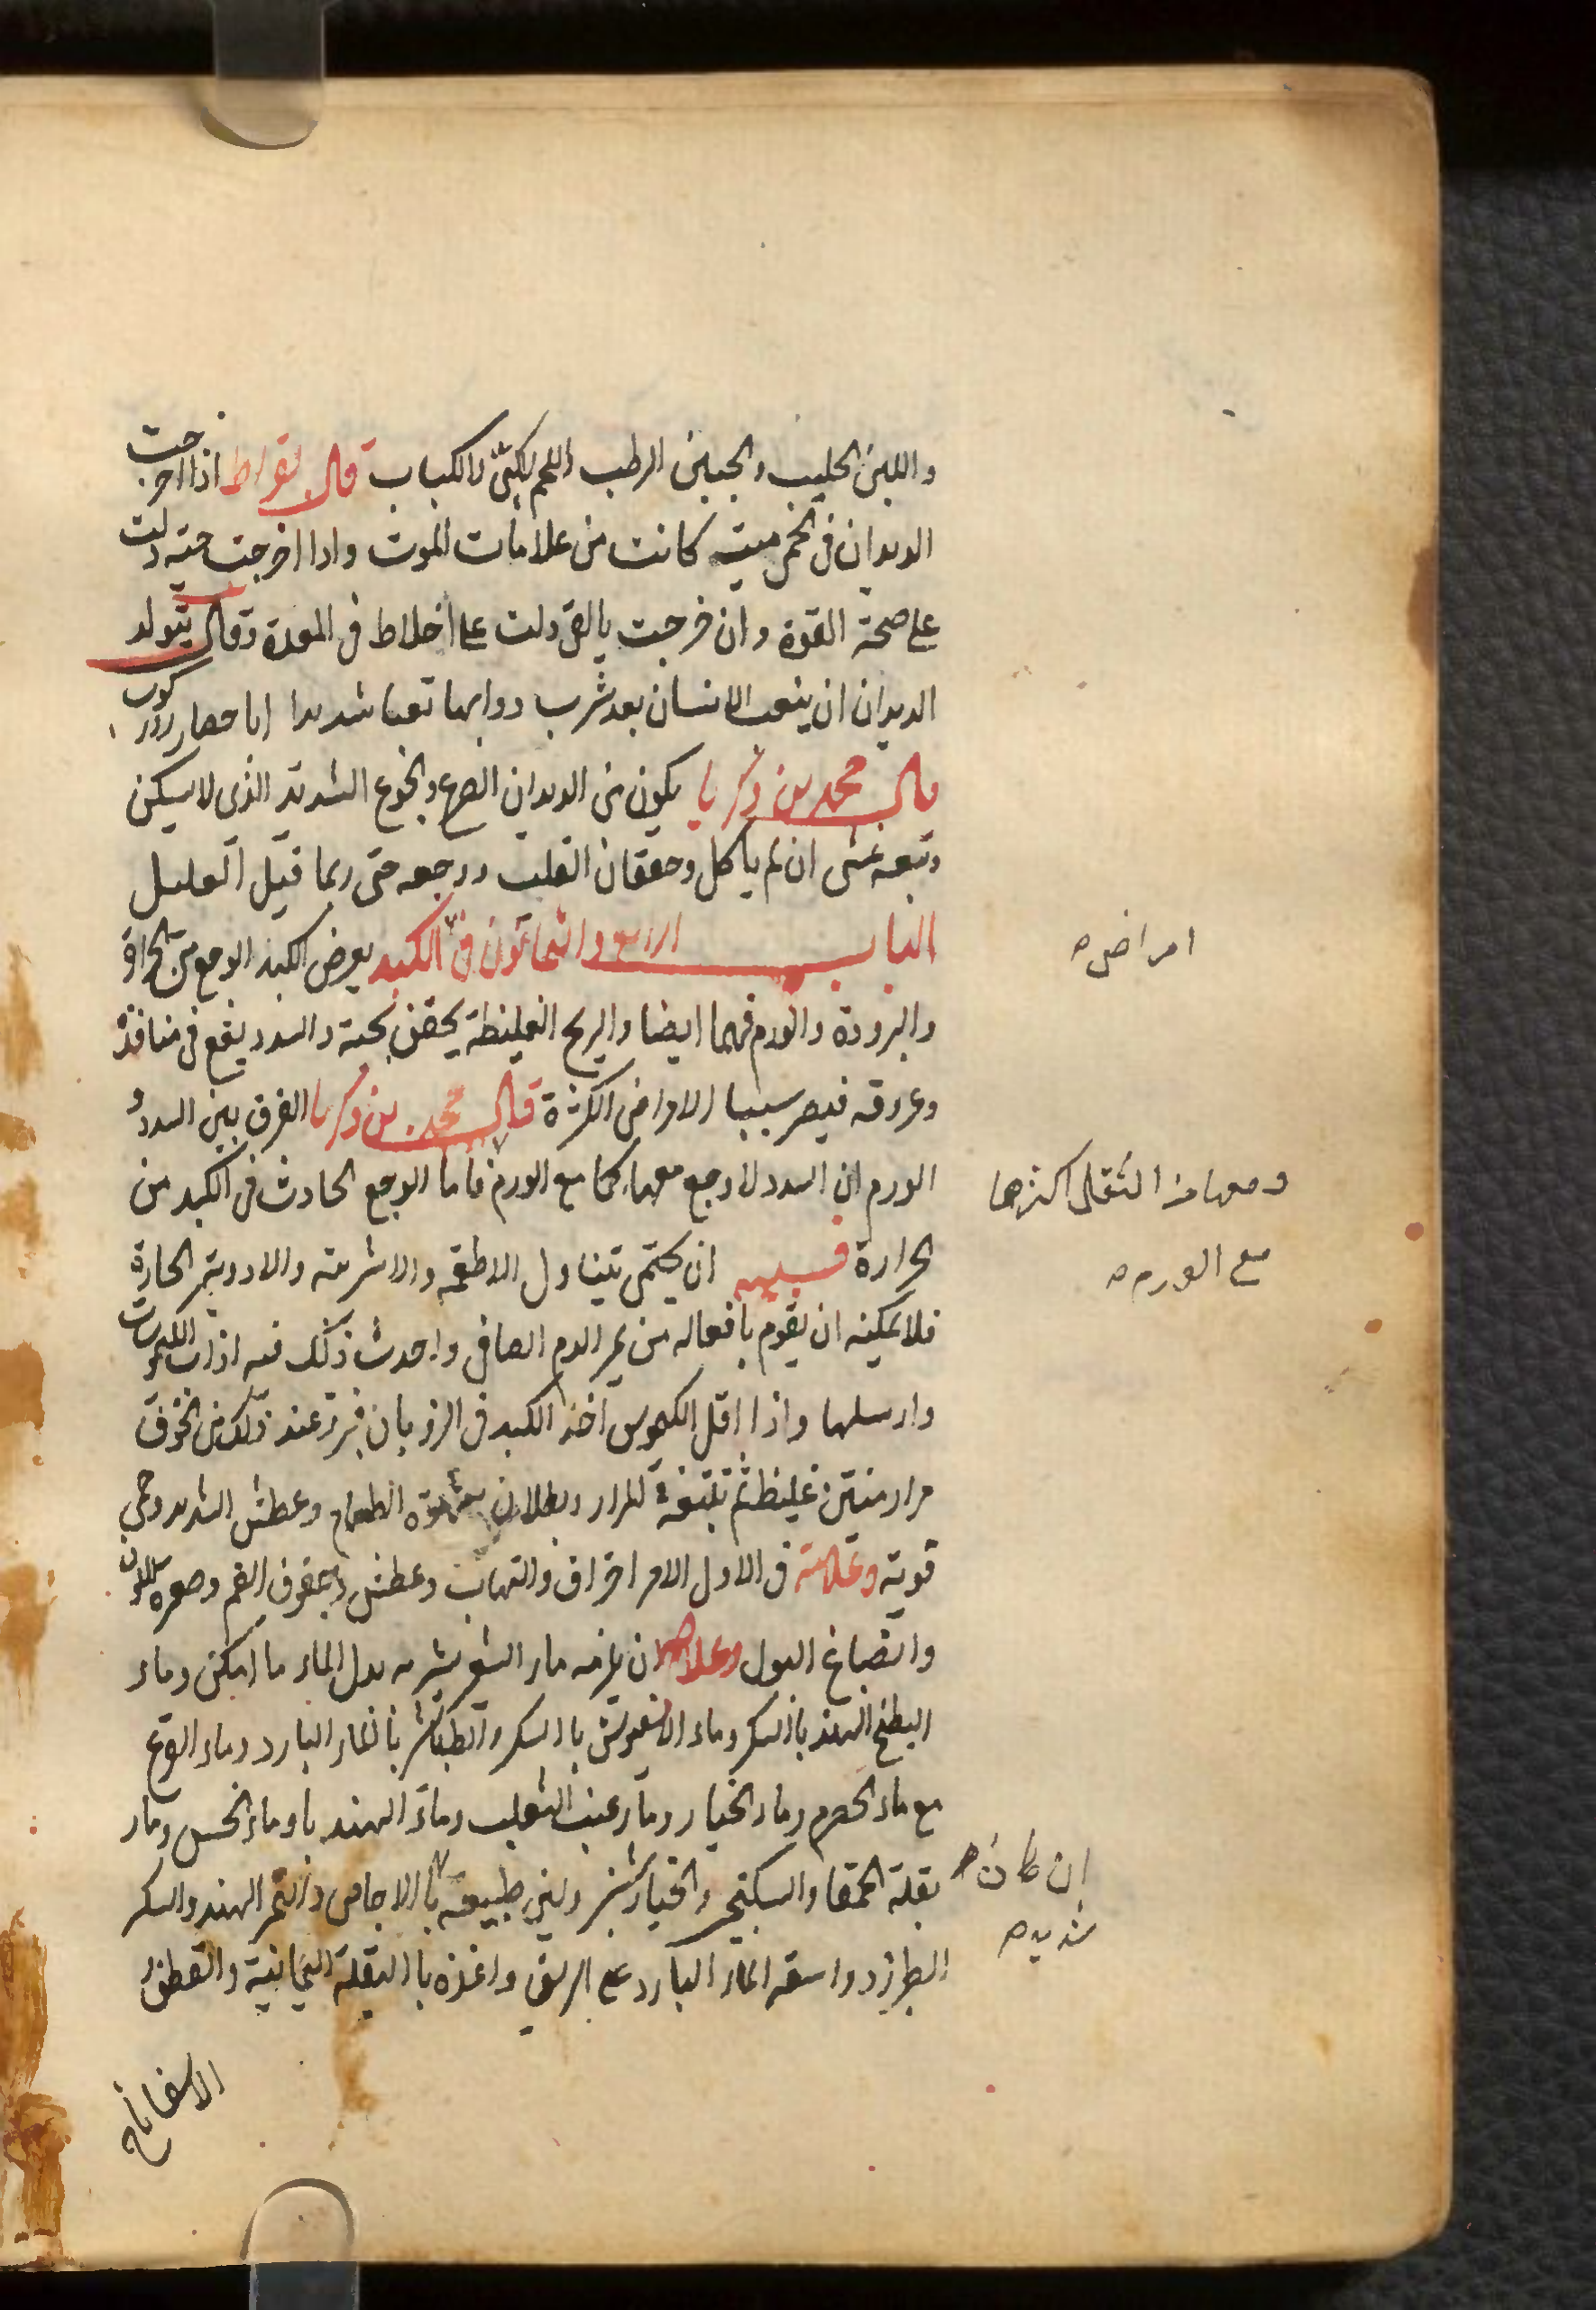 واللبن الحليب والجبن الرطب اللحم لكى كالكباب قال بقراط اذا اخرجت
الديدان فى الحمى ميته كانت من علامات الموت واذا اخرجت حيته دلت
على صحة القوة وان خرجت بالقى دلت على اخلاط فى المعدة وقال يتولد
الديدان ان يتعب الانسان بعد شرب دوايها تعبا شديدا اما حصار ركوب
قال محمد بن زكريا يكون من الديدان الصرع والجوع الشديد الذى لا يسكن
وتبعه غشى ان لم ياكل وخفقان القلب ووجعه حتى ربما قتل العليل
الباب الرابع والثمانون فى الكبد يعرض الكبد الوجع من الحرارة
امراض
والبرودة والورم فيهما ايضا والريح الغليظة يحتقن تحته والسدد يقع فى منافذه
وعروقه فيصير سببا الامراض الكثرة قال محمد بن زكريا الفرق بين السدد و
الورم ان السدد لا وجع معها كما مع الورم فاما الوجع الحادث فى الكبد من
ومعها من الثقل اكثرها
مع الورم
الحرارة فسببه ان يحتمى تتناول الاطعمه والاشربته والادويته الحارة
فلا يمكنه ان يقوم بافعاله من الدم الصافى واحدث ذلك فيه اذابت الكيموسات
وارسلها واذا اقل الكيموس اخذ الكبد فى الذوبان فبرز عند ذلك من الخوف
مرار منتن غليظ ثم تتبعه المرار وبطلان شهوة الطعام وعطش الشديد وحمى
قويته وعلامته فى الاول الامر احتراق والتهاب وعطش وجفوف الفم وصفرة اللون
وانصباغ البول وعلاجه ان يلزمه ماء الشعير يشربه بدل الماء ما امكن وماء
البطيخ الهند بالسكر وماء الاسفيوش بالسكر والطباشير بالماء البارد وماء القرع
مع ماء الحصرم وماء الخيار وماء عنب الثعلب وماء الهندبا وماء الخس وماء
بقلة الحمقا والسكنجبين والخيارشنبر ولين طبيعته بالاجاص والتمر الهند والسكر
ان كان
شديد
الطبرزد واسقه الماء البارد على الريق واغذه بالبقلة اليمانية والقطف
الاسفاناخ